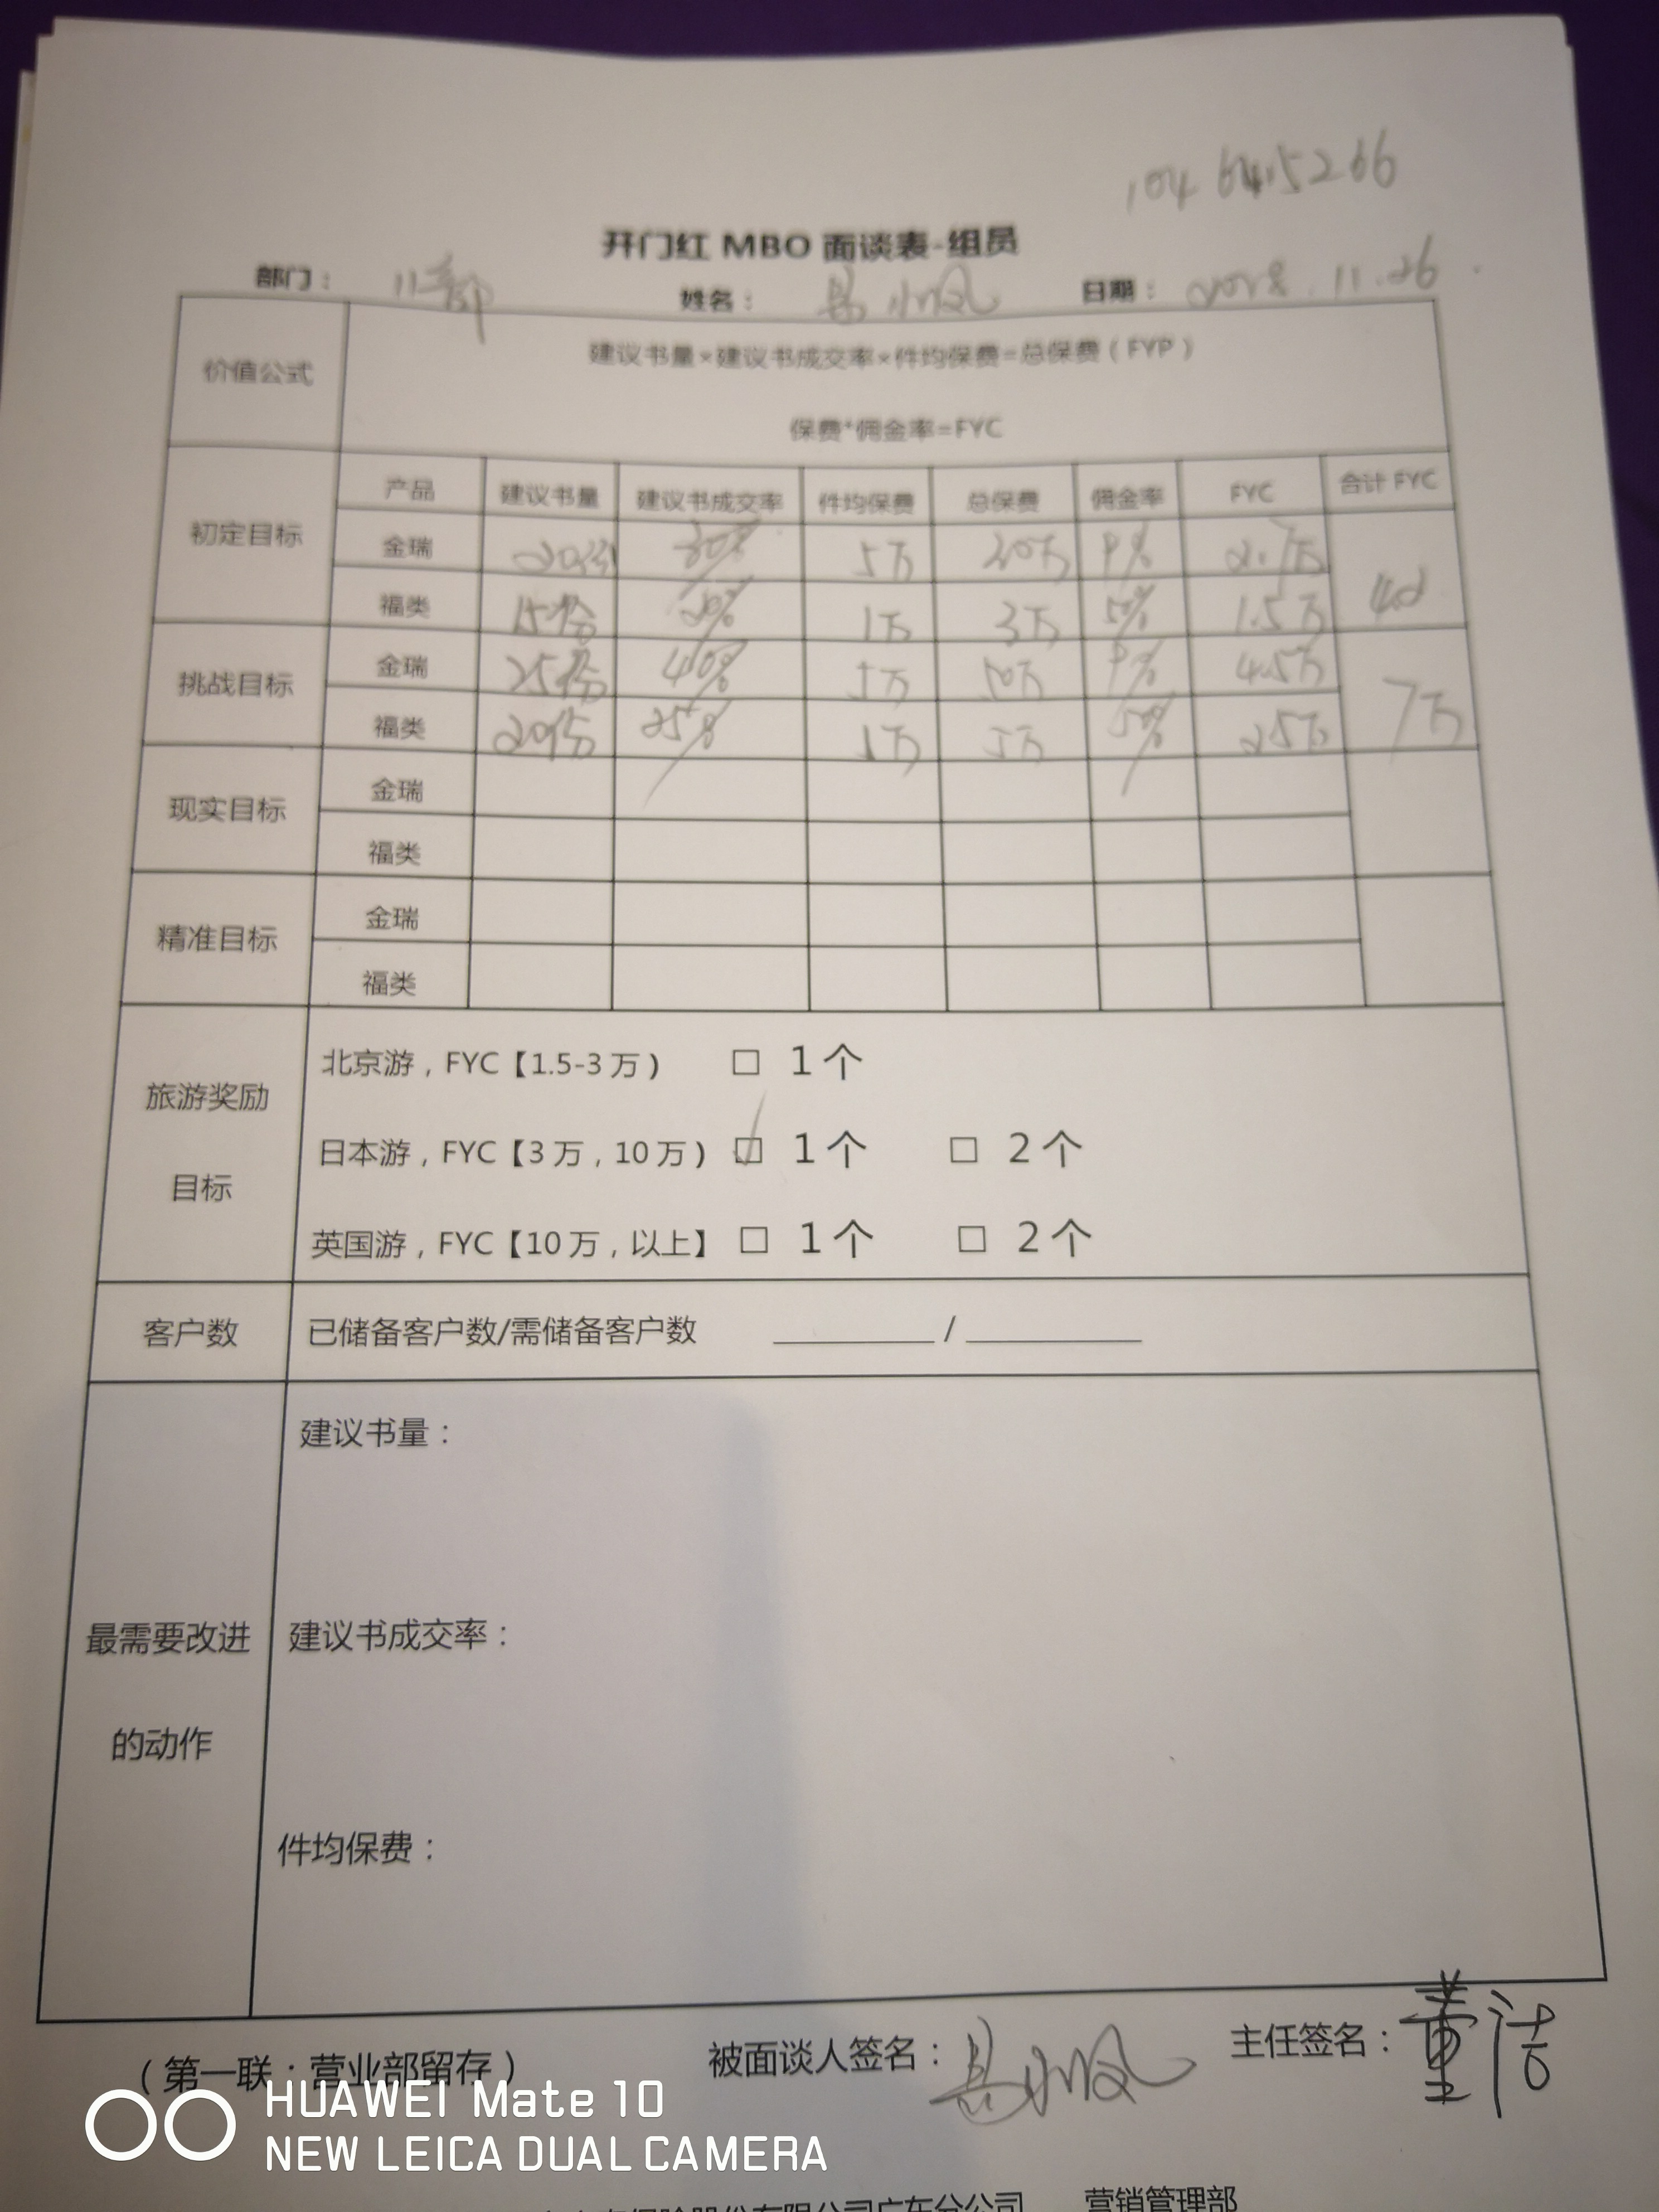 开门红 MBO 面谈表-组员
部门： 姓名： 小凤 日期： 2018.11.26
价值公式 建议书量×建议书成交率×件均保费=总保费（FYP）
保费*佣金率=FYC
产品 建议书量 建议书成交率 件均保费 总保费 佣金率 FYC 合计 FYC
初定目标
金瑞 20份 5万 9% 2.7万
福类 15份 20% 1万 3万 50% 1.5万
挑战目标
金瑞 25份 40% 5万 50万 9% 4.5万 7万
福类 20份 25% 1万 5万 50% 2.5万
现实目标
金瑞
福类
精准目标
金瑞
福类
旅游奖励
目标
北京游，FYC【1.5-3 万） □ 1 个
日本游，FYC【3 万，10 万） □ 1 个 □ 2 个
英国游，FYC【10 万，以上】 □ 1 个 □ 2 个
客户数 已储备客户数/需储备客户数 ______ / ______
最需要改进
的动作
建议书量：
建议书成交率：
件均保费：
（第一联：营业部留存） 被面谈人签名： 小凤 主任签名：董洁
HUAWEI Mate 10
NEW LEICA DUAL CAMERA
保险股份有限公司广东分公司 营销管理部